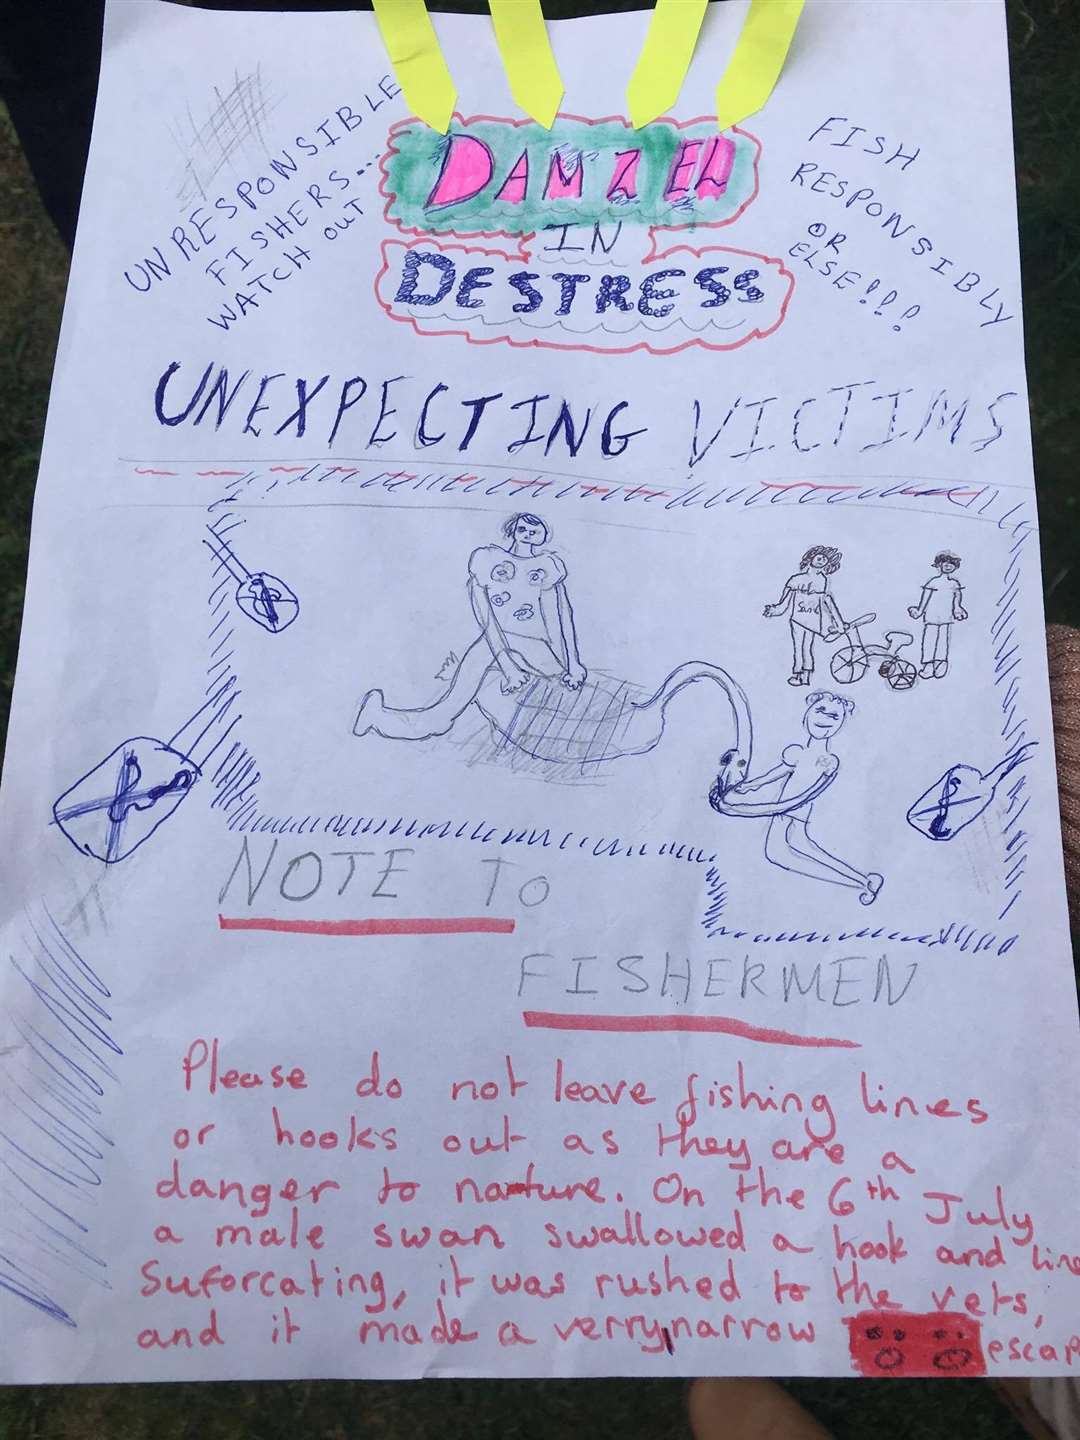 UNRESPONSIBLE
FISHERS...
WATCH OUT
DAMZEL
IN
DESTRESS
FISH
RESPONSIBLY
OR
ELSE!!!
UNEXPECTING VICTIMS
NOTE TO
FISHERMEN
Please do not leave fishing lines
or hooks out as they are a
danger to nature. On the 6th July
a male swan swallowed a hook and line
Suforcating, it was rushed to the vets,
and it made a verry narrow escap